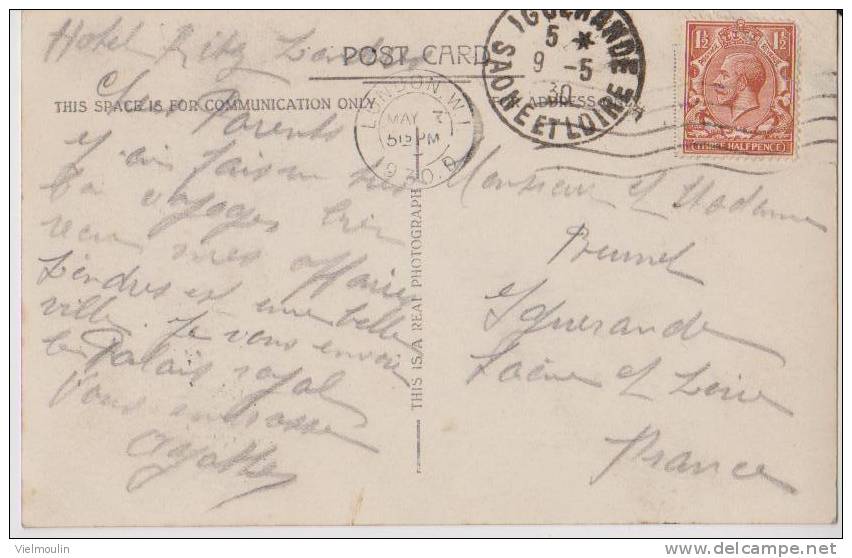 Hotel Ritz London
POST CARD
THIS SPACE IS FOR COMMUNICATION ONLY
ADDRESS
IGUERANDE
5 *
9 - 5
30
SAONE ET LOIRE
LONDON. W.1
MAY
5 15 PM
1930. D
1½ 1½
THREE HALFPENCE
THIS IS A REAL PHOTOGRAPH
Chers Parents
J'ai fait un très
bon voyage bien
reçu mes affaires
Londres est une belle
ville. Je vous envoie
le Palais royal
Vous embrasse
Monsieur et Madame
Brunet
Iguerande
Saône et Loire
France
Vielmoulin
www.delcampe.net